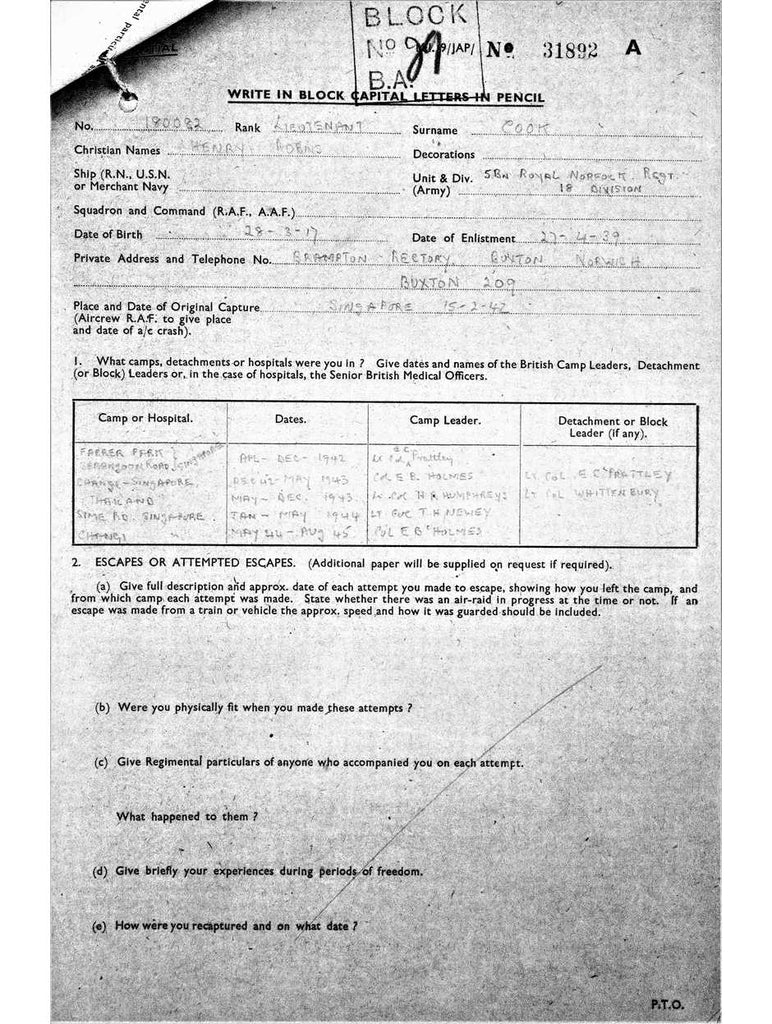 ntal partic
BLOCK
No 29 9/JAP/ No 31892 A
B.A.
WRITE IN BLOCK CAPITAL LETTERS IN PENCIL
No. 180082 Rank LIEUTENANT Surname COOK
Christian Names HENRY Decorations
Ship (R.N., U.S.N. Unit & Div. 5BN ROYAL NORFOLK REGT.
or Merchant Navy (Army) 18 DIVISION
Squadron and Command (R.A.F., A.A.F.)
Date of Birth 28-3-17 Date of Enlistment 27-4-39
Private Address and Telephone No. BRAMPTON RECTORY BUXTON NORWICH
BUXTON 209
Place and Date of Original Capture SINGAPORE 15-2-42
(Aircrew R.A.F. to give place
and date of a/c crash).
1. What camps, detachments or hospitals were you in ? Give dates and names of the British Camp Leaders, Detachment
(or Block) Leaders or, in the case of hospitals, the Senior British Medical Officers.
Camp or Hospital. Dates. Camp Leader. Detachment or Block
Leader (if any).
FARRER PARK
SERANGOON ROAD, SINGAPORE APL- DEC- 1942 Lt Col EC Prattley
CHANGI-SINGAPORE, DEC 42-MAY 1943 COL E B HOLMES LT COL E C PRATTLEY
THAILAND MAY- DEC. 1943 LT COL HUMPHREYS LT COL WHITTENBURY
SIME RD. SINGAPORE. JAN - MAY 1944 LT COL T H NEWEY
CHANGI MAY 44-AUG 45 COL E B HOLMES
2. ESCAPES OR ATTEMPTED ESCAPES. (Additional paper will be supplied on request if required).
(a) Give full description and approx. date of each attempt you made to escape, showing how you left the camp, and
from which camp each attempt was made. State whether there was an air-raid in progress at the time or not. If an
escape was made from a train or vehicle the approx. speed and how it was guarded should be included.
(b) Were you physically fit when you made these attempts ?
(c) Give Regimental particulars of anyone who accompanied you on each attempt.
What happened to them ?
(d) Give briefly your experiences during periods of freedom.
(e) How were you recaptured and on what date ?
P.T.O.